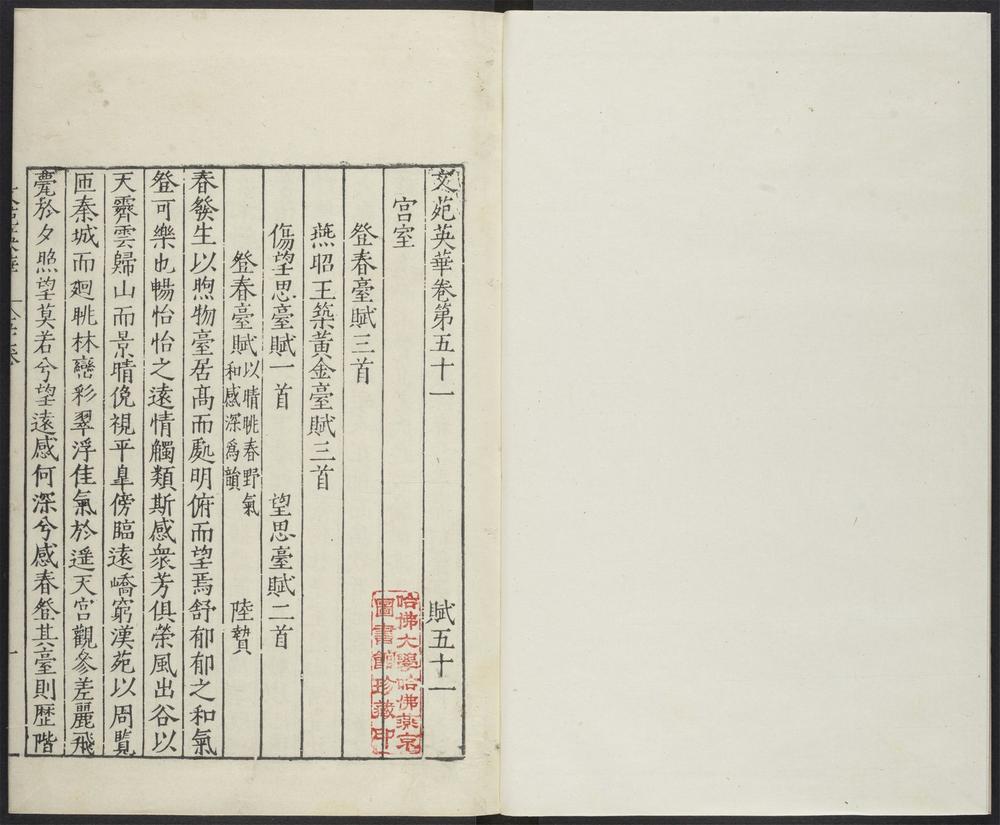 文苑英華卷第五十一　賦五十一
宫室
登春臺賦三首
燕昭王築黄金臺賦三首
傷望思臺賦一首　望思臺賦二首
登春臺賦　以晴眺春野氣和感深爲韻　陸贄
春發生以煦物臺居髙而處明俯而望焉舒郁郁之和氣
登可樂也暢怡怡之遠情觸類斯感衆芳俱榮風出谷以
天霽雲歸山而景晴俛視平臯傍臨遠嶠窮漢苑以周覧
匝秦城而廻眺林巒彩翠浮佳氣於遥天宫觀參差麗飛
甍於夕照望莫若兮望遠感何深兮感春登其臺則歴階
哈佛大學哈佛燕京
圖書館珍藏印
一